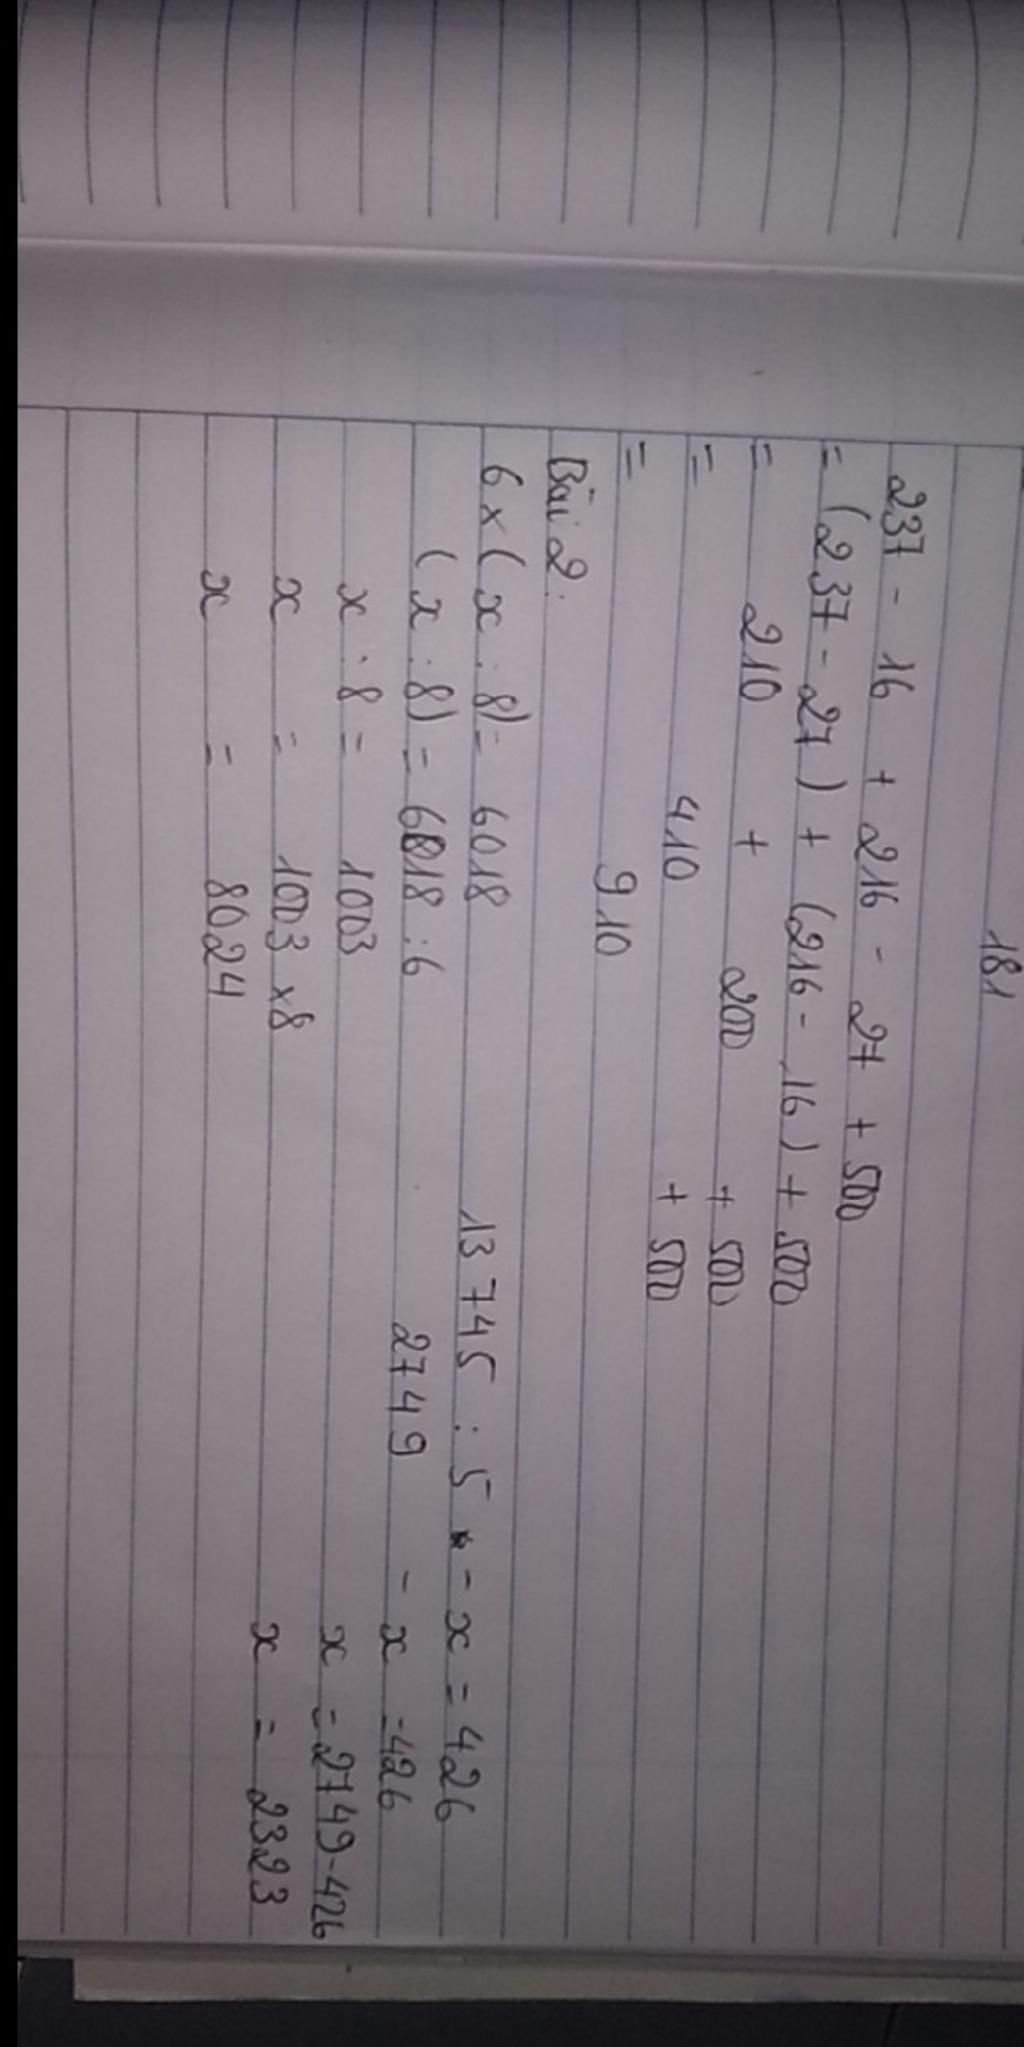 181
237 - 16 + 216 - 27 + 500
= (237 - 27) + (216 - 16) + 500
= 210 + 200 + 500
= 410 + 500
= 910
Bài 2:
6 x ( x : 8) = 6018
( x : 8) = 6018 : 6
x : 8 = 1003
x = 1003 x 8
x = 8024
13745 : 5 - x = 426
2749 - x = 426
x = 2749 - 426
x = 2323